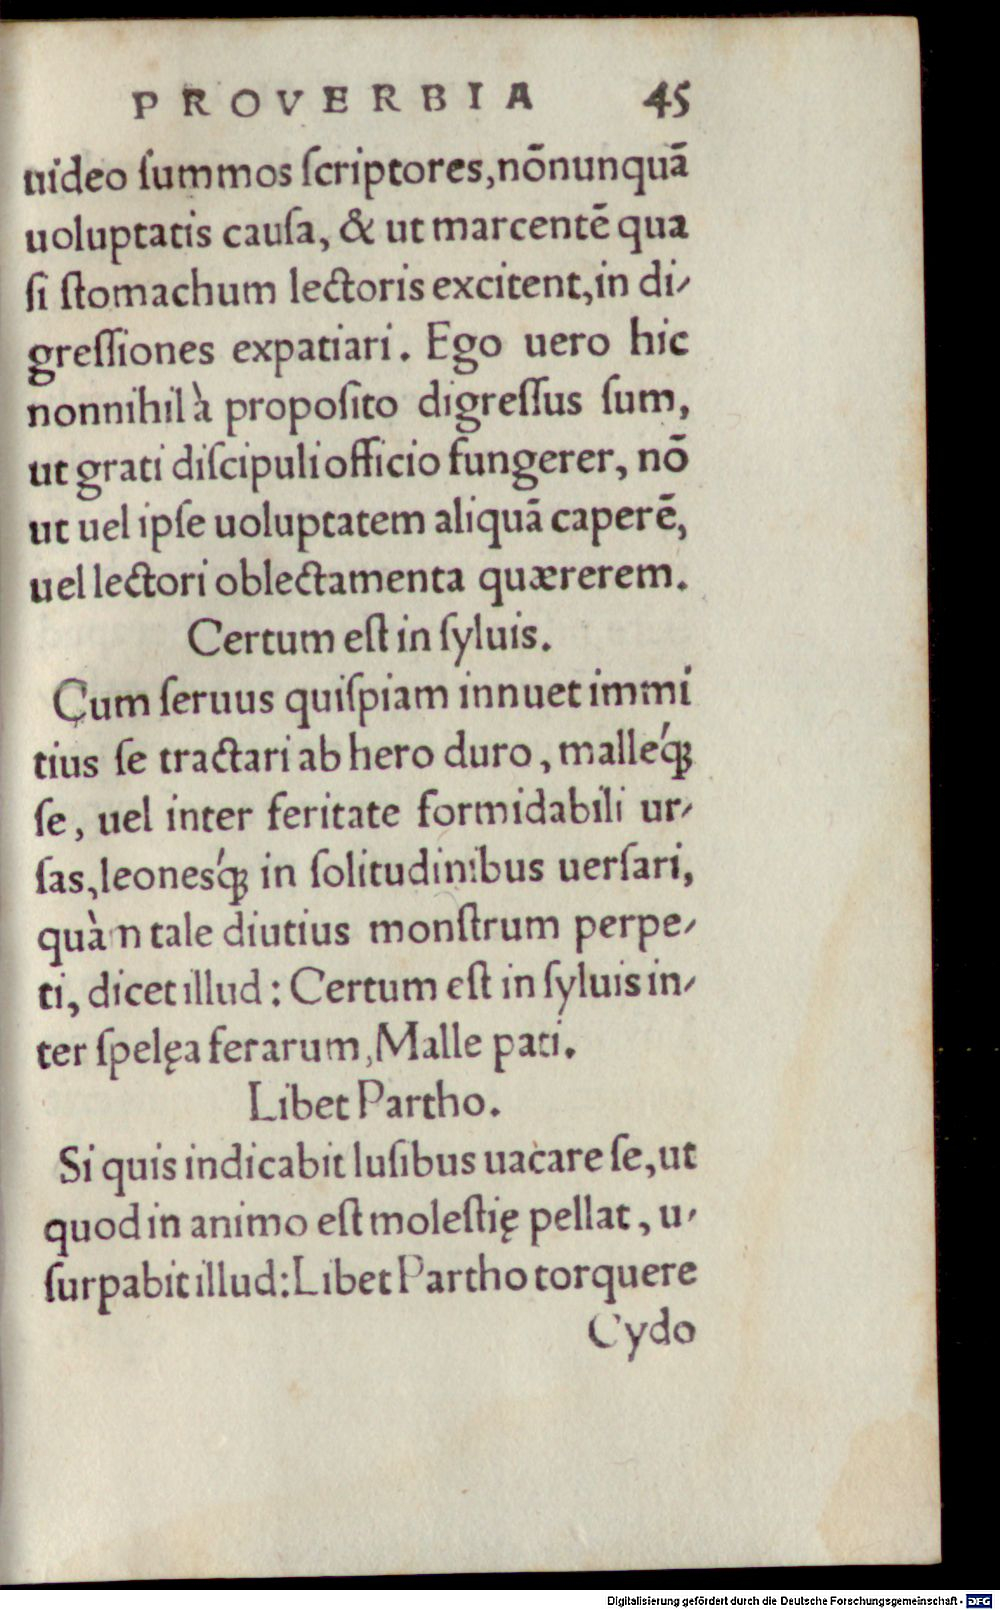 PROVERBIA 45
uideo ſummos ſcriptores,nōnunquā
uoluptatis cauſa, & ut marcentē qua
ſi ſtomachum lectoris excitent,in di-
greſſiones expatiari. Ego uero hic
nonnihil à propoſito digreſſus ſum,
ut grati diſcipuli officio fungerer, nō
ut uel ipſe uoluptatem aliquā caperē,
uel lectori oblectamenta quærerem.
Certum eſt in ſyluis.
Cum ſeruus quiſpiam innuet immi
tius ſe tractari ab hero duro, malleq́ꝫ
ſe, uel inter feritate formidabili ur-
ſas,leoneſq́ꝫ in ſolitudinibus uerſari,
quàm tale diutius monſtrum perpe-
ti, dicet illud: Certum eſt in ſyluis in-
ter ſpelęa ferarum, Malle pati.
Libet Partho.
Si quis indicabit luſibus uacare ſe,ut
quod in animo eſt moleſtię pellat, u-
ſurpabit illud: Libet Partho torquere
Cydo
Digitalisierung gefördert durch die Deutsche Forschungsgemeinschaft - DFG